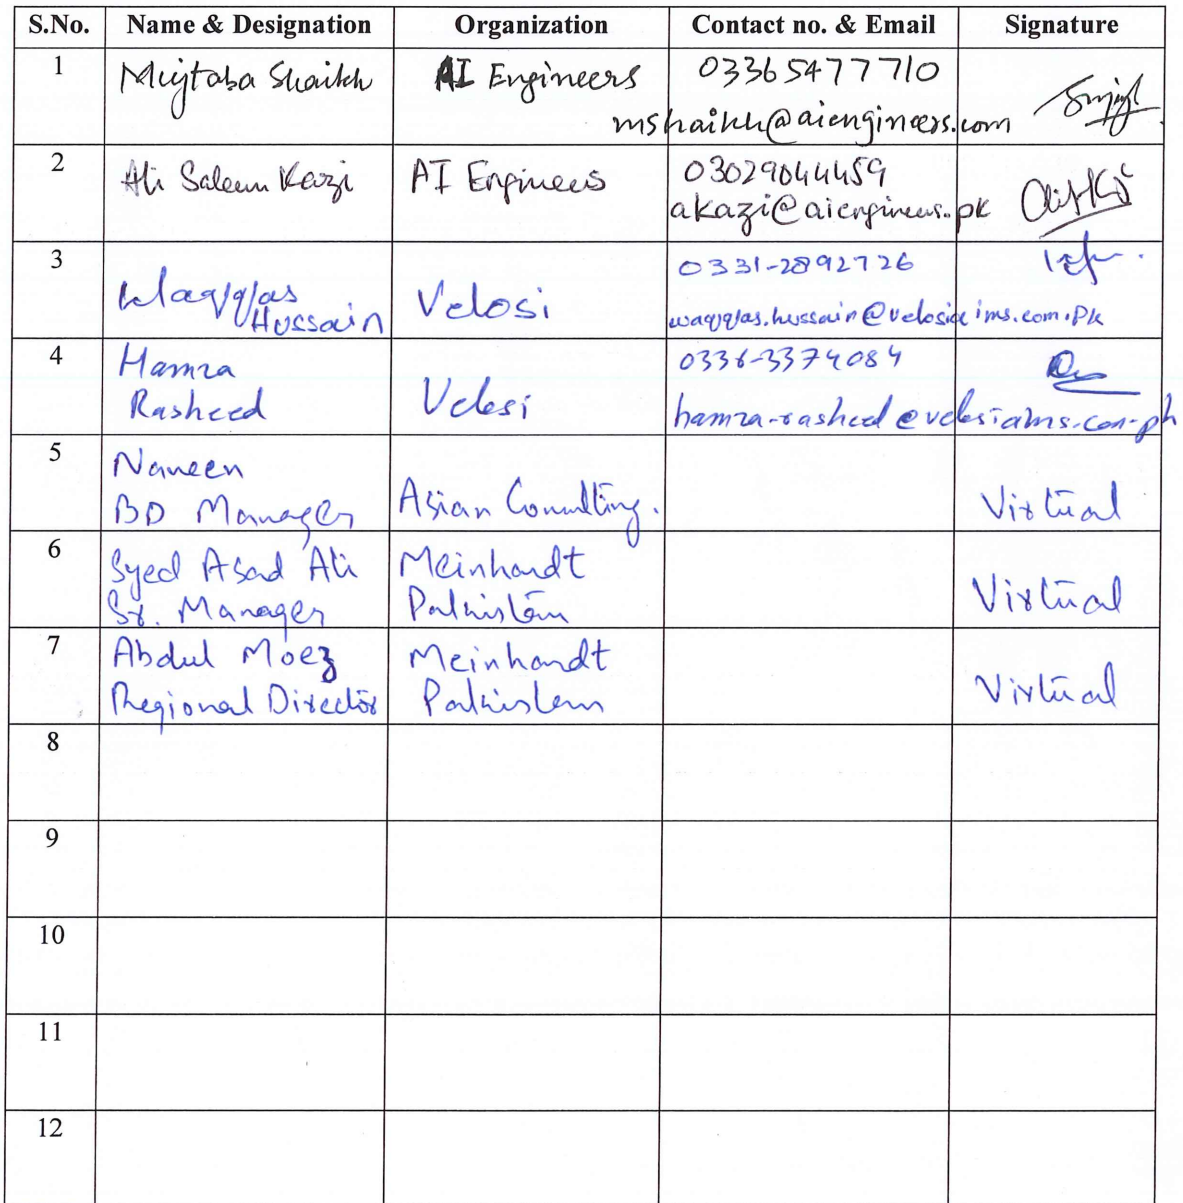 S.No. Name & Designation Organization Contact no. & Email Signature
1 Mujtaba Shaikh AI Engineers 03365477710
mshaikh@aiengineers.com
2 Ali Saleem Kazi AI Engineers 03029044459
akazi@aiengineers.pk
3 0331-2892726
Waqqas Velosi
Hussain waqqas.hussain@velosiaims.com.pk
4 Hamza 0336-3374084
Rasheed Velosi hamza-rasheed@velosiaims.com.pk
5 Naveen
BD Manager Asian Consulting. Virtual
6 Syed Asad Ali Meinhardt
Sr. Manager Pakistan Virtual
7 Abdul Moez Meinhardt
Regional Director Pakistan Virtual
8
9
10
11
12